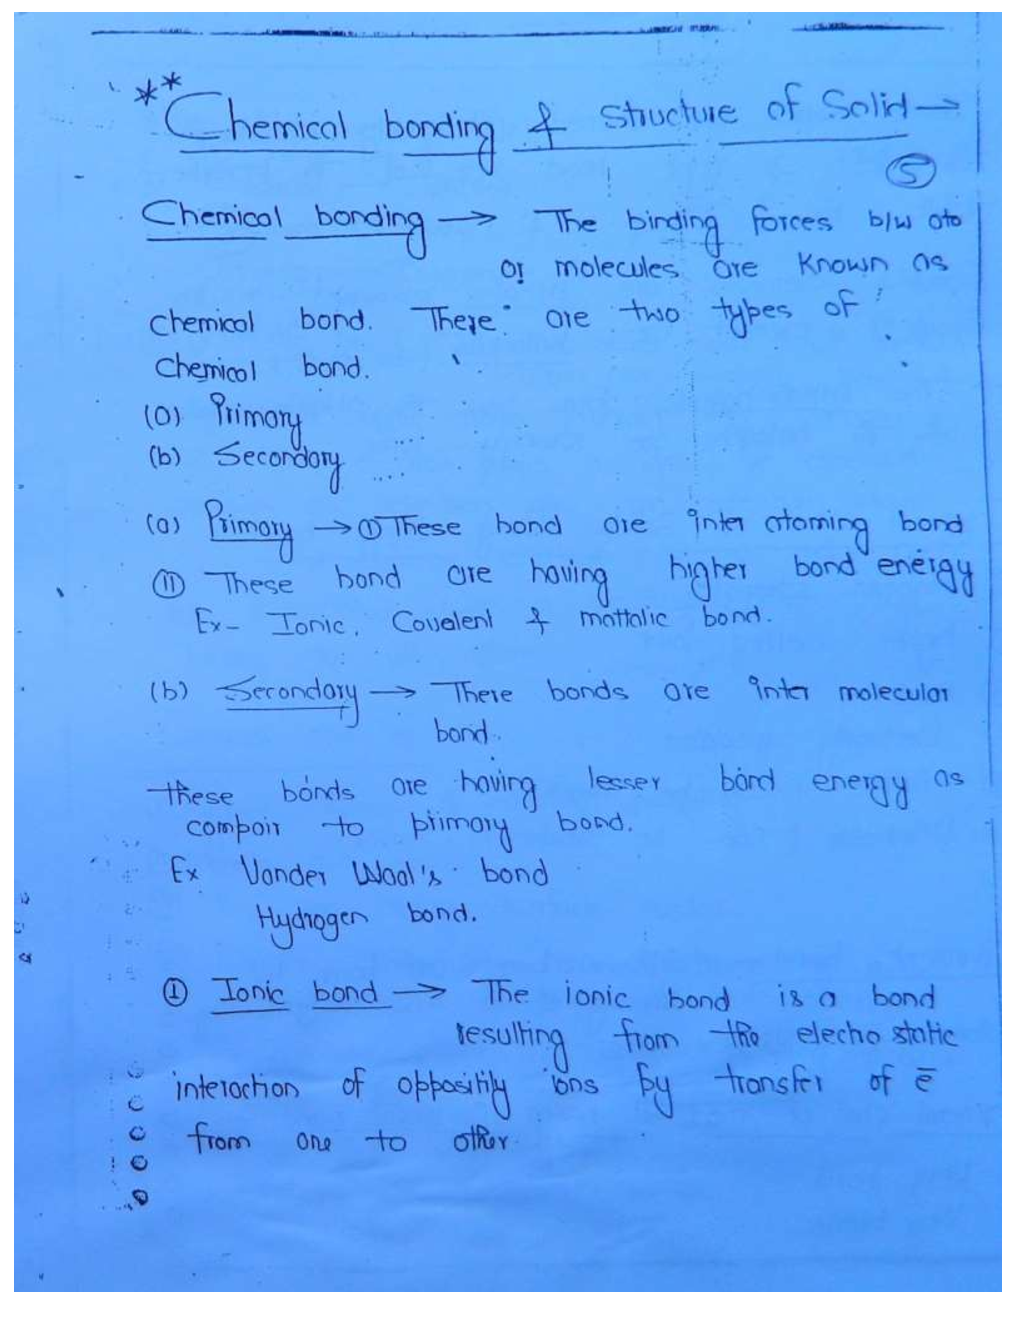 ** Chemical bonding & structure of Solid →
5
Chemical bonding → The binding forces b/w ato
or molecules are Known as
chemical bond. There are two types of
Chemical bond.
(a) Primary
(b) Secondary
(a) Primary → (I) These bond are inter atoming bond
(II) These bond are having higher bond energy
Ex- Ionic, Covalent & mattalic bond.
(b) Secondary → There bonds are inter molecular
bond.
these bonds are having lesser bond energy as
compair to primary bond.
Ex Vander Waal's bond
Hydrogen bond.
(I) Ionic bond → The ionic bond is a bond
resulting from the electro static
interaction of oppositily ions by transfer of ē
from one to other.